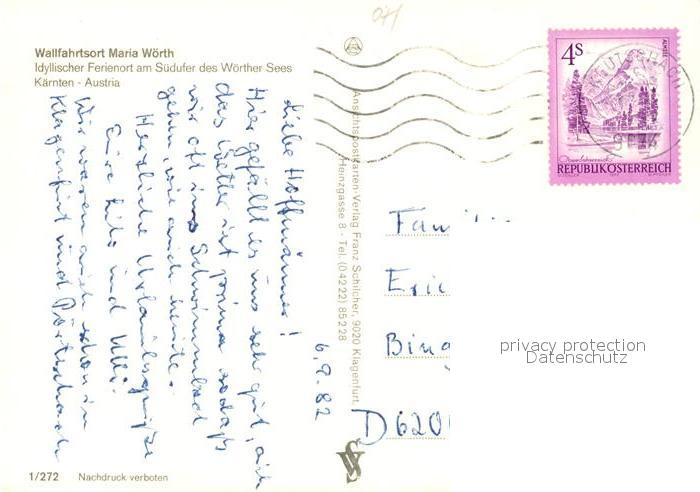 Wallfahrtsort Maria Wörth
Idyllischer Ferienort am Südufer des Wörther Sees
Kärnten - Austria
071
6.9.82
Liebe Hoffmänner!
Hier gefällt es uns sehr gut, auch
das Wetter ist prima sodaß
wir oft ins Schwimmbad
gehen, wie auch heute.
Herzliche Urlaubsgrüße
Eure Lilo und Uli.
Wir waren auch schon in
Klagenfurt und Pörtschach
Ansichtspostkarten-Verlag Franz Schilcher, 9020 Klagenfurt,
Heinzgasse 8 · Tel. (04222) 85228
4S
ALMSEE
REPUBLIK ÖSTERREICH
Fam
Eric
Bing
D 620
privacy protection
Datenschutz
1/272 Nachdruck verboten